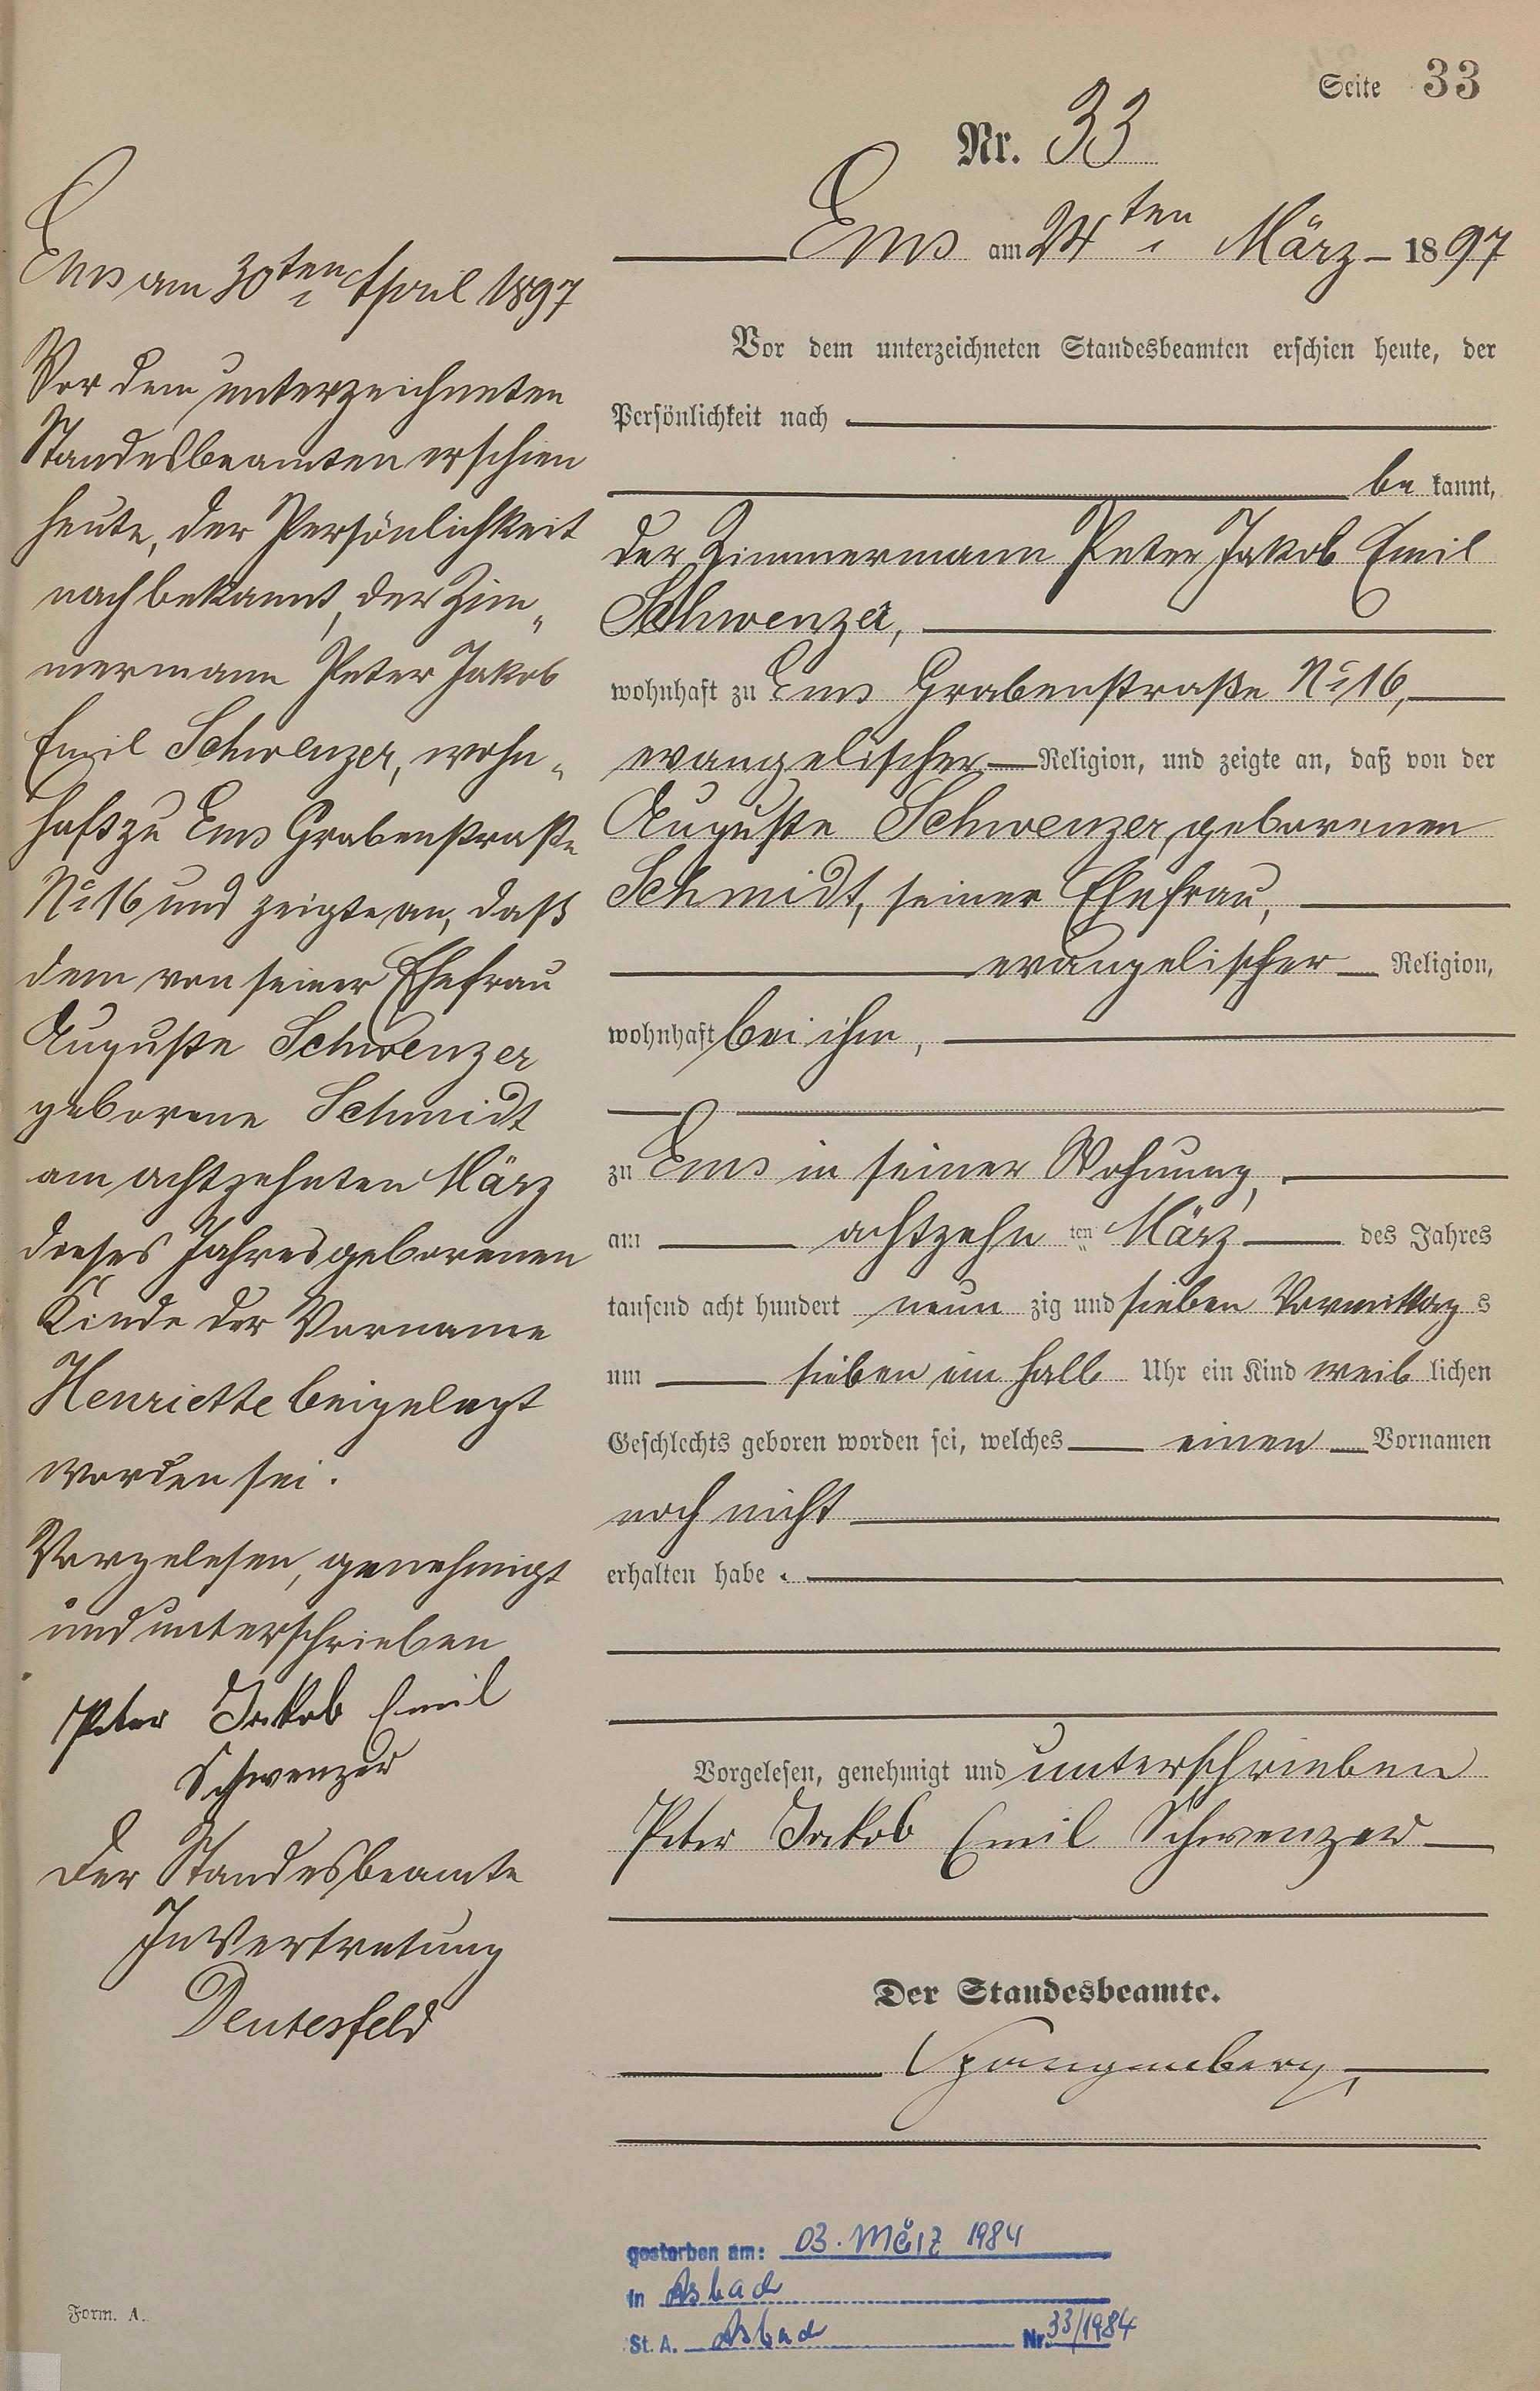 Seite 33
Nr. 33
Ems am 24ten März 1897
Vor dem unterzeichneten Standesbeamten erschien heute, der
Persönlichkeit nach
be kannt,
der Zimmermann Peter Jakob Emil
Schwenzer,
wohnhaft zu Ems Grabenstraße No 16,
evangelischer Religion, und zeigte an, daß von der
Auguste Schwenzer, geborenen
Schmidt, seiner Ehefrau,
evangelischer Religion,
wohnhaft bei ihm,
zu Ems in seiner Wohnung,
am achtzehn ten März des Jahres
tausend acht hundert neun zig und sieben Vormittag s
um sieben ein halb Uhr ein Kind weib lichen
Geschlechts geboren worden sei, welches einen Vornamen
noch nicht
erhalten habe.
Vorgelesen, genehmigt und unterschrieben
Peter Jakob Emil Schwenzer
Der Standesbeamte.
Spangenberg
Ems am 30ten April 1897
Vor dem unterzeichneten
Standesbeamten erschien
heute, der Persönlichkeit
nach bekannt, der Zim„
mermann Peter Jakob
Emil Schwenzer, wohn„
haft zu Ems Grabenstraße
No 16 und zeigte an, daß
dem von seiner Ehefrau
Auguste Schwenzer
geborene Schmidt
am achtzehnten März
dieses Jahres geborenen
Kinde der Vorname
Henriette beigelegt
worden sei.
Vorgelesen, genehmigt
und unterschrieben
Peter Jakob Emil
Schwenzer
Der Standesbeamte
In Vertretung
Deutesfeld
gestorben am: 03. März 1984
in Asbach
St. A. Asbach Nr. 33/1984
Form. A.